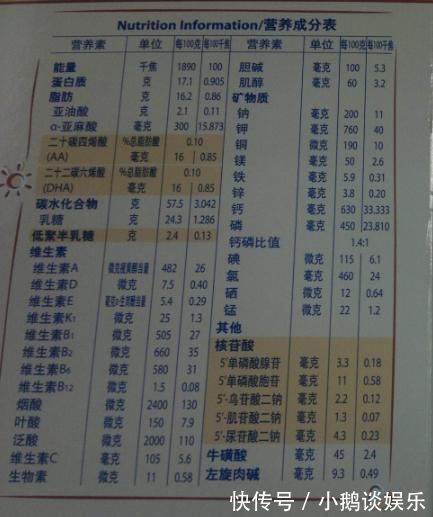 Nutrition Information/营养成分表
营养素 单位 每100克 每100千焦
能量 千焦 1890 100
蛋白质 克 17.1 0.905
脂肪 克 16.2 0.86
亚油酸 克 2.1 0.11
α-亚麻酸 毫克 300 15.873
二十碳四烯酸 %总脂肪酸 0.10
(AA) 毫克 16 0.85
二十二碳六烯酸 %总脂肪酸 0.10
(DHA) 毫克 16 0.85
碳水化合物 克 57.5 3.042
乳糖 克 24.3 1.286
低聚半乳糖 克 2.4 0.13
维生素
维生素A 微克视黄醇当量 482 26
维生素D 微克 7.5 0.40
维生素E 毫克α-生育酚当量 5.4 0.29
维生素K₁ 微克 25 1.3
维生素B₁ 微克 505 27
维生素B₂ 微克 660 35
维生素B₆ 微克 580 31
维生素B₁₂ 微克 1.5 0.08
烟酸 微克 2400 130
叶酸 微克 150 7.9
泛酸 微克 2000 110
维生素C 毫克 105 5.6
生物素 微克 11 0.58
营养素 单位 每100克 每100千焦
胆碱 毫克 100 5.3
肌醇 毫克 60 3.2
矿物质
钠 毫克 200 11
钾 毫克 760 40
铜 微克 190 10
镁 毫克 50 2.6
铁 毫克 5.9 0.31
锌 毫克 3.8 0.20
钙 毫克 630 33.333
磷 毫克 450 23.810
钙磷比值 1.4:1
碘 微克 115 6.1
氯 毫克 460 24
硒 微克 12 0.64
锰 微克 22 1.2
其他
核苷酸
5'单磷酸腺苷 毫克 3.3 0.18
5'单磷酸胞苷 毫克 11 0.58
5'-鸟苷酸二钠 毫克 2.2 0.12
5'-肌苷酸二钠 毫克 1.3 0.07
5'-尿苷酸二钠 毫克 4.3 0.23
牛磺酸 毫克 45 2.4
左旋肉碱 毫克 9.3 0.49
快传号/小鹅谈娱乐